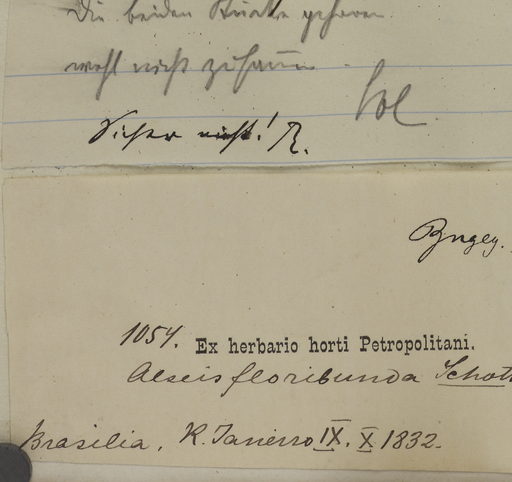 Die beiden Stücke gehören
wohl nicht zusamm
Sol
Sicher nicht! R.
1054. Ex herbario horti Petropolitani.
Alseis floribunda Schott
Brasilia. R. Janeiro IX. X 1832.